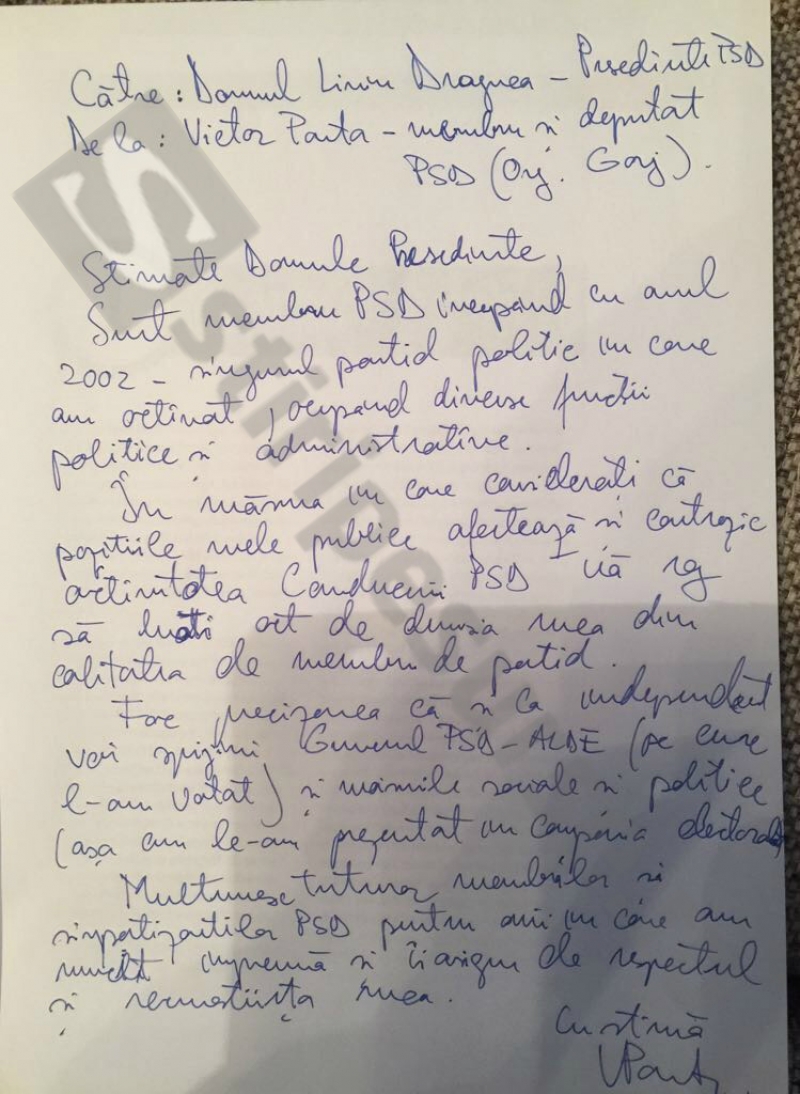 Către: Domnul Liviu Dragnea – Președinte PSD
De la: Victor Ponta – membru și deputat
PSD (Org. Gorj).
Stimate Domnule Președinte,
Sunt membru PSD începând cu anul
2002 – singurul partid politic în care
am activat, ocupând diverse funcții
politice și administrative.
În măsura în care considerați că
pozițiile mele publice afectează și contrazic
activitatea Conducerii PSD vă rog
să luați act de demisia mea din
calitatea de membru de partid.
Fac precizarea că și ca independent
voi sprijini Guvernul PSD-ALDE (pe care
l-am votat) și măsurile sociale și politice
(așa cum le-am prezentat în campania electorală)
Mulțumesc tuturor membrilor și
simpatizanților PSD pentru anii în care am
muncit împreună și îi asigur de respectul
și recunoștința mea.
Cu stimă
VPonta
Stiripesurse